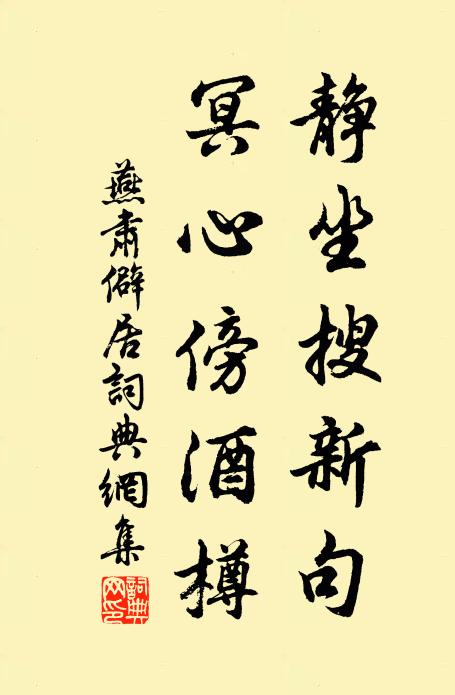 静坐搜新句
冥心傍酒樽
燕肅僻居詞典網集
詞典网印